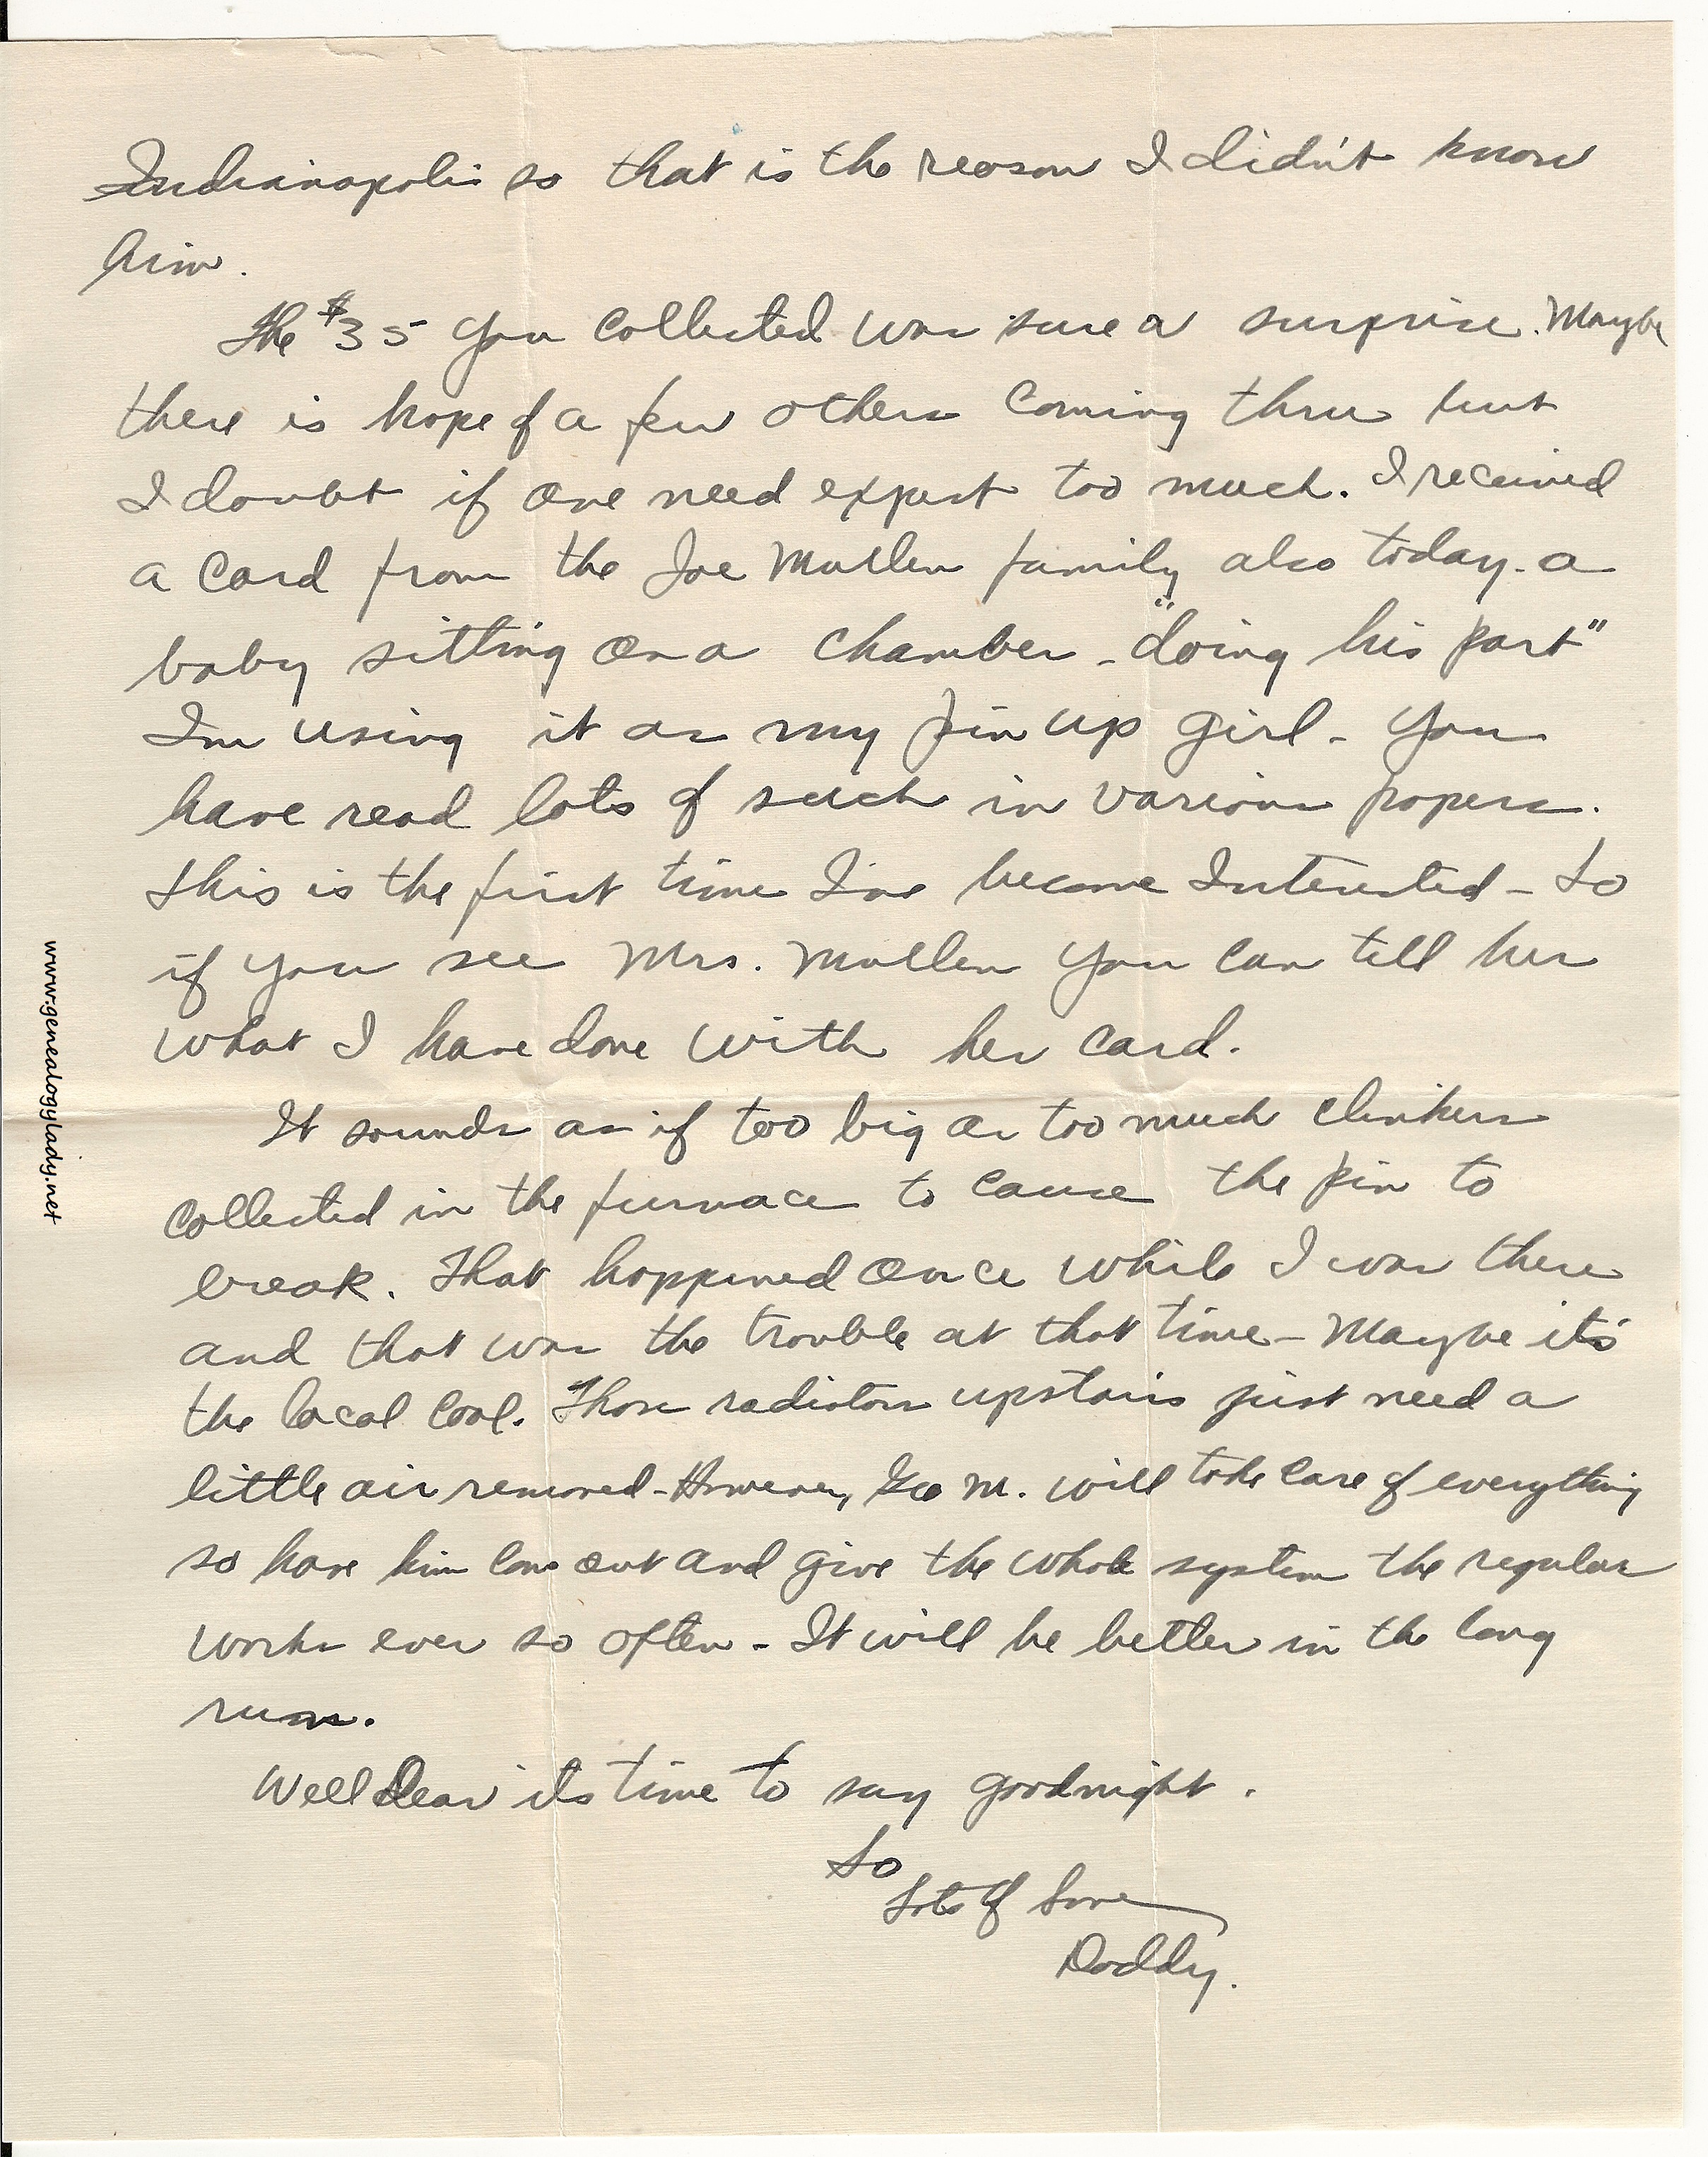 Indianapolis so that is the reason I didn't know
him.
The $35 you collected was sure a surprise. Maybe
there is hope of a few others coming thru but
I doubt if one need expect too much. I received
a card from the Joe Mullen family also today - a
baby sitting on a chamber - "doing his part"
Im using it as my pin up girl - you
have read lots of such in various papers.
This is the first time Ive become Interested - So
if you see Mrs. Mullen you can tell her
what I have done with her card.
It sounds as if too big or too much clinkers
collected in the furnace to cause the pin to
break. That happened once while I was there
and that was the trouble at that time - Maybe it's
the local coal. Those radiators upstairs just need a
little air removed - However, Geo M. will take care of everything
so have him come out and give the whole system the regular
works ever so often - It will be better in the long
run.
Well Dear its time to say goodnight.
So
Lots of Love
Daddy.
www.genealogylady.net